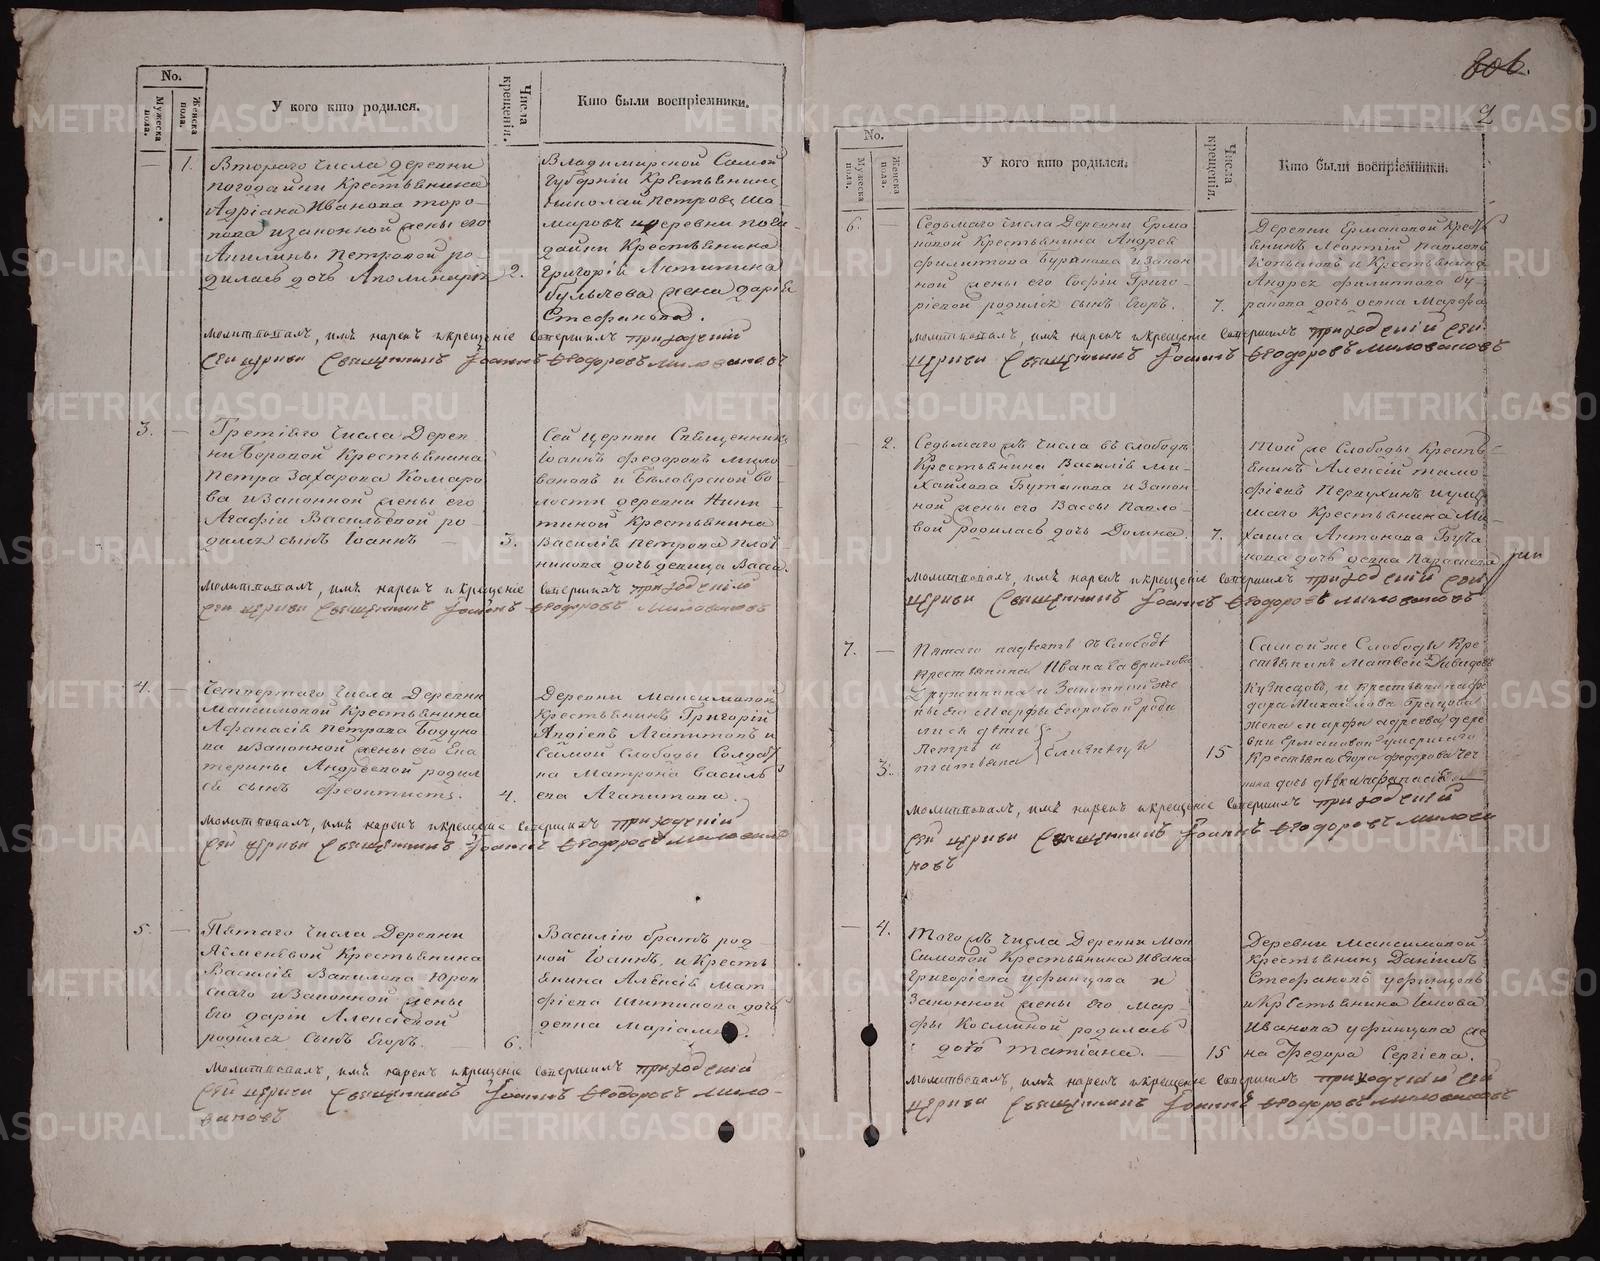 No.
Мужеска пола.
Женска пола.
У кого кто родился.
Числа крещенія.
Кто были воспріемники.
1.
Втораго числа деревни
погодайки Крестьянина
Адріана Иванова торо-
пова и законной жены его
Акилины Петровой ро-
дилась дочь Аполинарія
2.
Владимирской самой
Губерніи Крестьянинъ
Николай Петровъ
и деревни пога-
дайки Крестьянина
Григорій
булычева жена дарія
Стефанова.
молитвовалъ, имя нарекъ и крещеніе совершилъ приходскій
сей церкви Священникъ Іоаннъ Ѳеодоровъ Миловановъ
3.
Третіяго числа Дерев
ни Боровой Крестьянина
Петра Захарова Комаро
ва и законной жены его
Агафіи Васильевой ро-
дился сынъ Іоаннъ
3.
Сей церкви Священникъ
Іоаннъ Федоровъ мило
вановъ и Бѣлоярской во
лости деревни
Крестьянина
Василія Петрова Плот
никова дочь девица Васса.
молитвовалъ, имя нарекъ и крещеніе совершилъ приходскій
сей церкви Священникъ Іоаннъ Ѳеодоровъ Миловановъ
4.
Четвертаго числа Деревни
Максимовой Крестьянина
Афанасія Петрова
ва и законной жены его Ека
терины Андреевой родил
ся сынъ Феоктистъ.
4.
Деревни Максимовой
Крестьянинъ Григорій
Агапитовъ и
самой Слободы Солдат
ка Матрона Василь
ева Агапитова.
молитвовалъ, имя нарекъ и крещеніе совершилъ приходскій
сей церкви Священникъ Іоаннъ Ѳеодоровъ Миловано
5.
Пятаго числа Деревни
Крестьянина
Василія Вавилова Юров
скаго и законной жены
его дарьи Алексіевой
родился сынъ Егоръ.
6.
Василію братъ род
ной Іоаннъ, и Кресть
янина Алексія Мат
фіева дочь
девка Маріамна.
молитвовалъ, имя нарекъ и крещеніе совершилъ приходскій
сей церкви Священникъ Іоаннъ Ѳеодоровъ Мило-
вановъ
2
No.
Мужеска пола.
Женска пола.
У кого кто родился.
Числа крещенія.
Кто были воспріемники.
6.
Седьмаго числа Деревни Ерма
ковой Крестьянина Андрея
филиппова Буракова и закон
ной жены его Софіи Григо-
ріевой родился сынъ Егоръ.
7.
Деревни Ермаковой Кресть
янинъ Леонтій Павловъ
Копыловъ и Крестьянина
Андрея филиппова бу-
ракова дочь девка Марфа
молитвовалъ, имя нарекъ и крещеніе совершилъ приходскій сей
церкви Священникъ Іоаннъ Ѳеодоровъ Миловановъ
2.
Седьмаго жъ числа въ слободѣ
Крестьянина Василія Ми-
хаилова Бутакова и закон
ной жены его Вассы Павло-
вой родилась дочь Домна.
7.
Той же Слободы Кресть-
янинъ Алексій тимо
фіевъ Первухинъ и умер
шаго Крестьянина Ми-
хаила Антонова Бута
кова дочь девка Параскева
молитвовалъ, имя нарекъ и крещеніе совершилъ приходскій сей
церкви Священникъ Іоаннъ Ѳеодоровъ Миловановъ
7.
3.
Пятаго надесять въ Слободѣ
крестьянина Ивана Гаврилова
и Законной же
ны его Марфы Егоровой роди
лися дѣти
Петръ и
татьяна
близнецы
15
Самой же Слободы Кре
стьянинъ Матвей Давидовъ
Кузнецовъ, и крестьянина фе
дора Михайлова
жена марфа андреева дере
вни Ермаковой умершаго
Крестьянина Егора федорова
дочь дѣвка афанасія
молитвовалъ, имя нарекъ и крещеніе совершилъ приходскій
сей церкви Священникъ Іоаннъ Ѳеодоровъ Милова
новъ
4.
Того жъ числа Деревни Мак
симовой Крестьянина Ивана
Григоріева уфинцова и
Законной жены его Мар-
фы Косминой родилась
дочь татіана.
15
Деревни Максимовой
Крестьянинъ Даніилъ
Стефановъ уфинцовъ
и Крестьянина Іакова
Иванова уфинцова же
на Федора Сергіева.
молитвовалъ, имя нарекъ и крещеніе совершилъ приходскій сей
церкви Священникъ Іоаннъ Ѳеодоровъ Миловановъ
METRIKI.GASO-URAL.RU